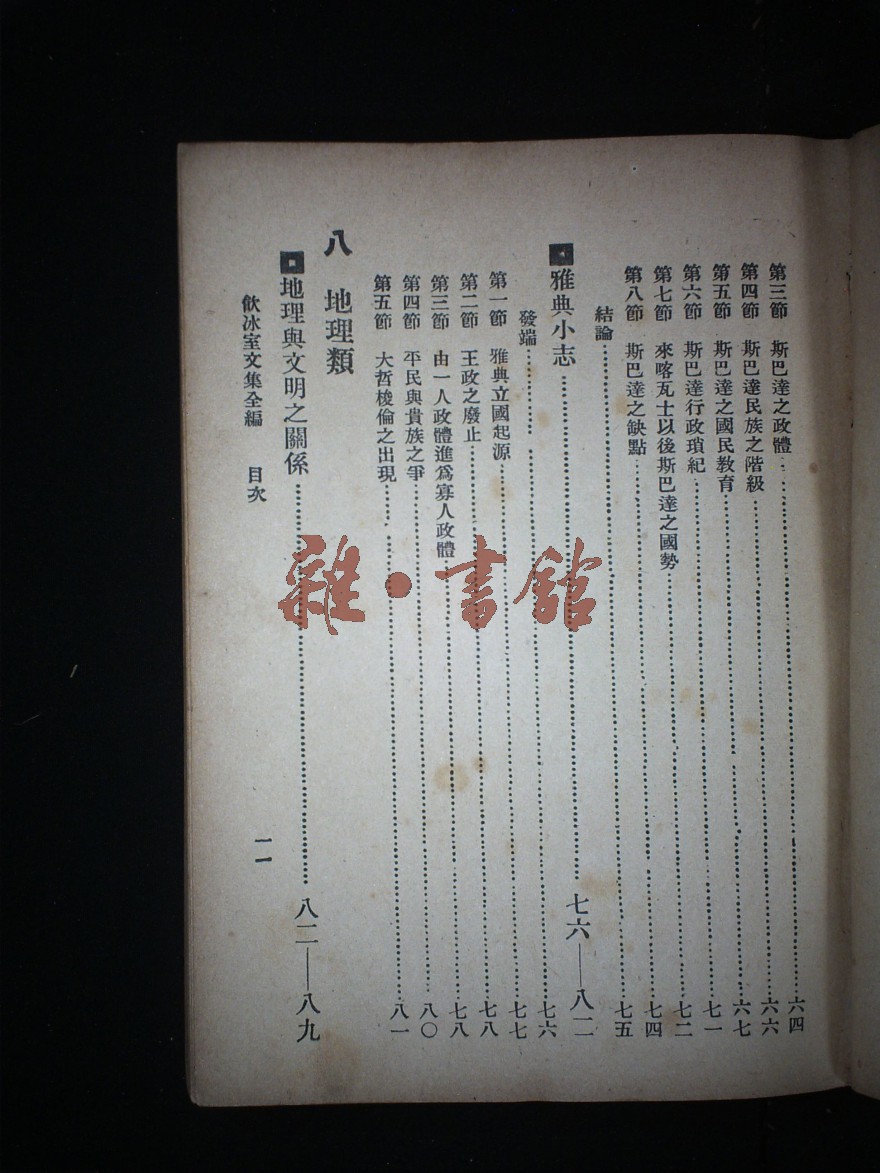 第三節　斯巴達之政體……六四
第四節　斯巴達民族之階級……六六
第五節　斯巴達之國民教育……六七
第六節　斯巴達行政瑣紀……七一
第七節　來喀瓦士以後斯巴達之國勢……七二
第八節　斯巴達之缺點……七四
結論……七五
雅典小志……七六—八二
發端……七六
第一節　雅典立國起源……七七
第二節　王政之廢止……七八
第三節　由一人政體進爲寡人政體……七八
第四節　平民與貴族之爭……八〇
第五節　大哲梭倫之出現……八一
八　地理類
地理與文明之關係……八二—八九
飲冰室文集全編　目次
一一
雜·書館